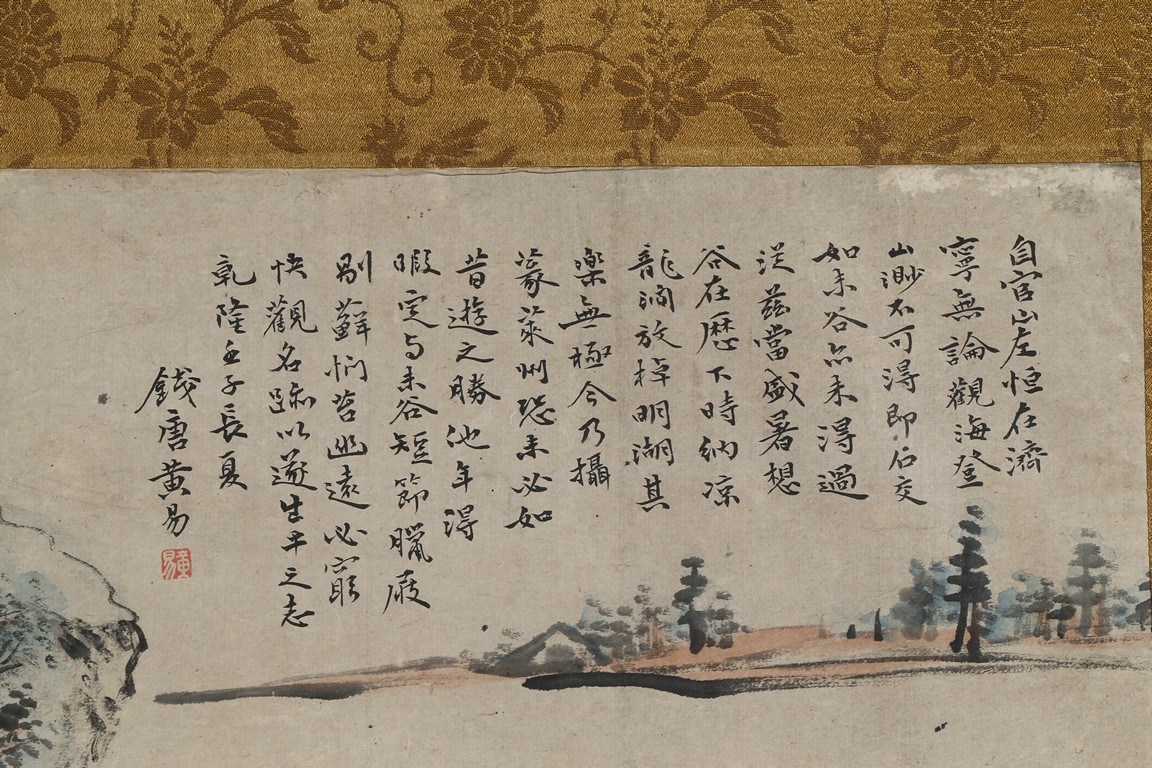 自官山左恒在濟
寧無論觀海登
山渺不可得即石交
如未谷亦未得過
從茲當盛暑想
谷在歷下時納凉
龍洞放棹明湖其
樂無極今乃攝
篆萊州恐未必如
昔遊之勝池年得
暇定与未谷短節臘屐
剔蘚捫苔幽遠必窮
快觀名跡以遂生平之志
乾隆壬子長夏
錢唐黃易
黃易